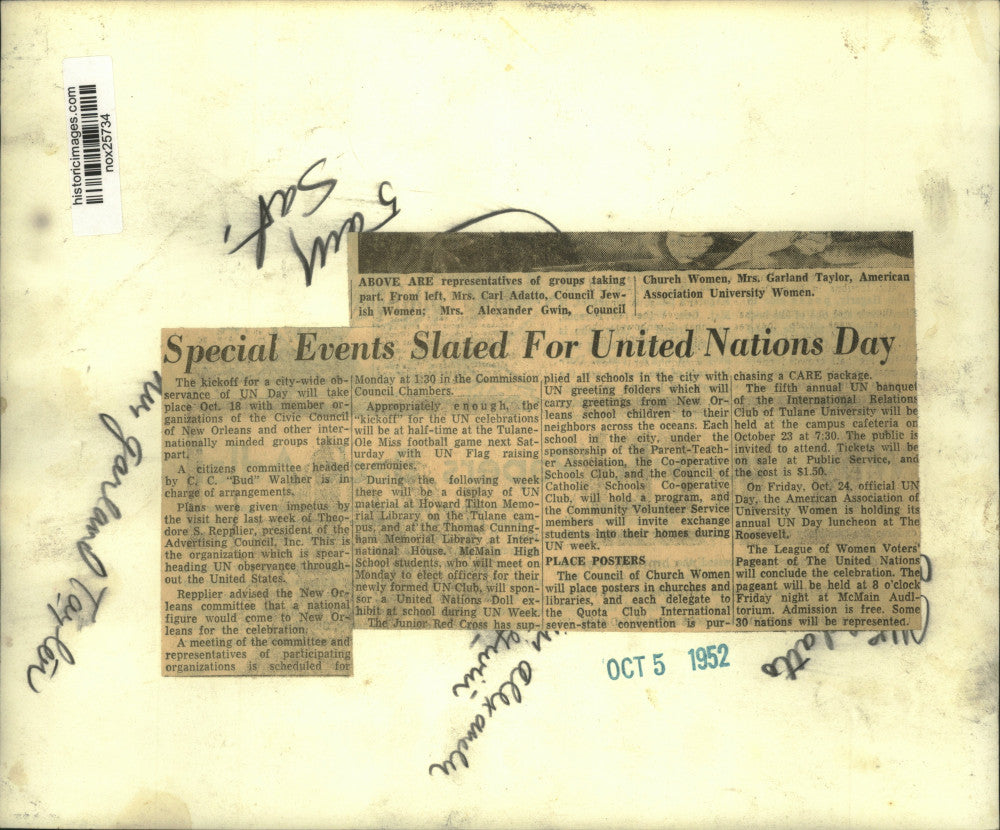 historicimages.com
nox25734
Sat.
ABOVE ARE representatives of groups taking
part. From left, Mrs. Carl Adatto, Council Jew-
ish Women; Mrs. Alexander Gwin, Council
Church Women, Mrs. Garland Taylor, American
Association University Women.
Special Events Slated For United Nations Day
The kickoff for a city-wide ob-
servance of UN Day will take
place Oct. 18 with member or-
ganizations of the Civic Council
of New Orleans and other inter-
nationally minded groups taking
part.
A citizens committee headed
by C. C. "Bud" Walther is in
charge of arrangements.
Plans were given impetus by
the visit here last week of Theo-
dore S. Repplier, president of the
Advertising Council, Inc. This is
the organization which is spear-
heading UN observance through-
out the United States.
Repplier advised the New Or-
leans committee that a national
figure would come to New Or-
leans for the celebration.
A meeting of the committee and
representatives of participating
organizations is scheduled for
Monday at 1:30 in the Commission
Council Chambers.
Appropriately enough, the
"kickoff" for the UN celebrations
will be at half-time at the Tulane-
Ole Miss football game next Sat-
urday with UN Flag raising
ceremonies.
During the following week
there will be a display of UN
material at Howard Tilton Memo-
rial Library on the Tulane cam-
pus, and at the Thomas Cunning-
ham Memorial Library at Inter-
national House. McMain High
School students, who will meet on
Monday to elect officers for their
newly formed UN Club, will spon-
sor a United Nations Doll ex-
hibit at school during UN Week.
The Junior Red Cross has sup-
plied all schools in the city with
UN greeting folders which will
carry greetings from New Or-
leans school children to their
neighbors across the oceans. Each
school in the city, under the
sponsorship of the Parent-Teach-
er Association, the Co-operative
Schools Club, and the Council of
Catholic Schools Co-operative
Club, will hold a program, and
the Community Volunteer Service
members will invite exchange
students into their homes during
UN week.
PLACE POSTERS
The Council of Church Women
will place posters in churches and
libraries, and each delegate to
the Quota Club International
seven-state convention is pur-
chasing a CARE package.
The fifth annual UN banquet
of the International Relations
Club of Tulane University will be
held at the campus cafeteria on
October 23 at 7:30. The public is
invited to attend. Tickets will be
on sale at Public Service, and
the cost is $1.50.
On Friday, Oct. 24, official UN
Day, the American Association of
University Women is holding its
annual UN Day luncheon at The
Roosevelt.
The League of Women Voters'
Pageant of The United Nations
will conclude the celebration. The
pageant will be held at 8 o'clock
Friday night at McMain Audi-
torium. Admission is free. Some
30 nations will be represented.
mrs Garland Taylor
alexander
Gwin
OCT 5 1952